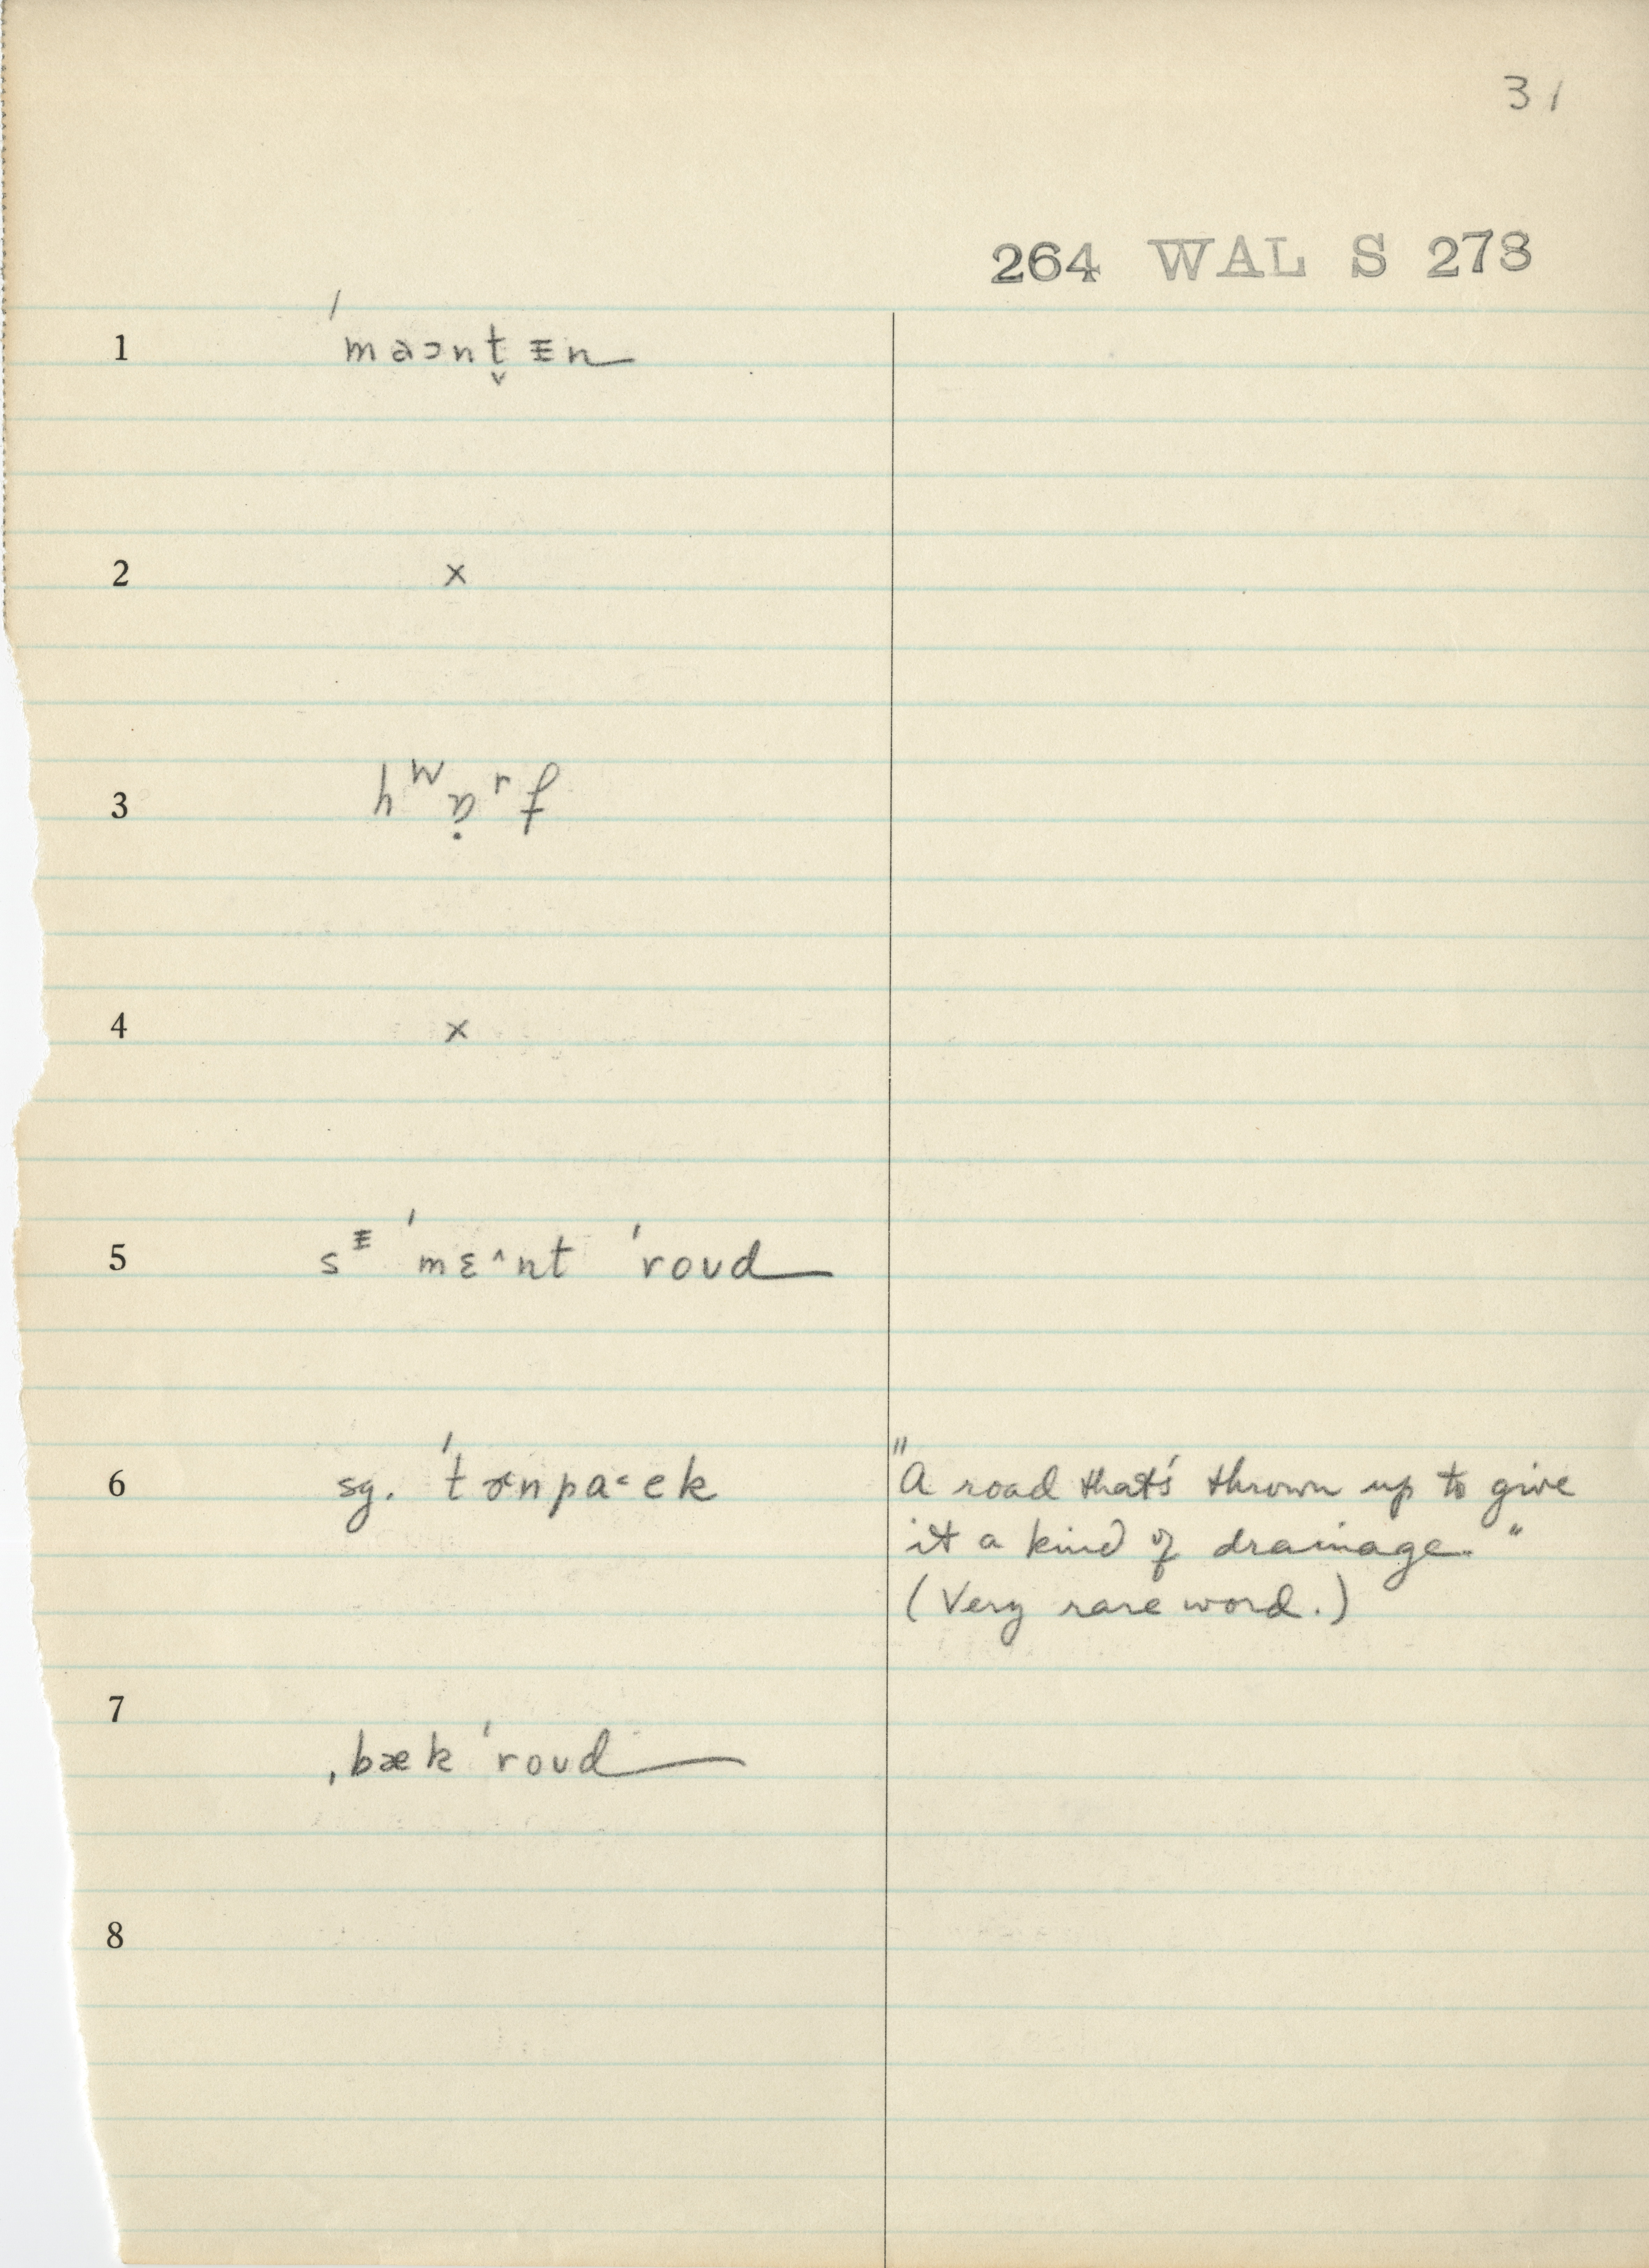 31
264 WAL S 273
1 ˈmaɔnt̬ᵻn
2 x
4 x
5 sᵻ ˈmɛ^nt ˈroʊd
6 sg. "A road that's thrown up to give
it a kind of drainage."
(Very rare word.)
7 ˌbæk ˈroʊd
8
3